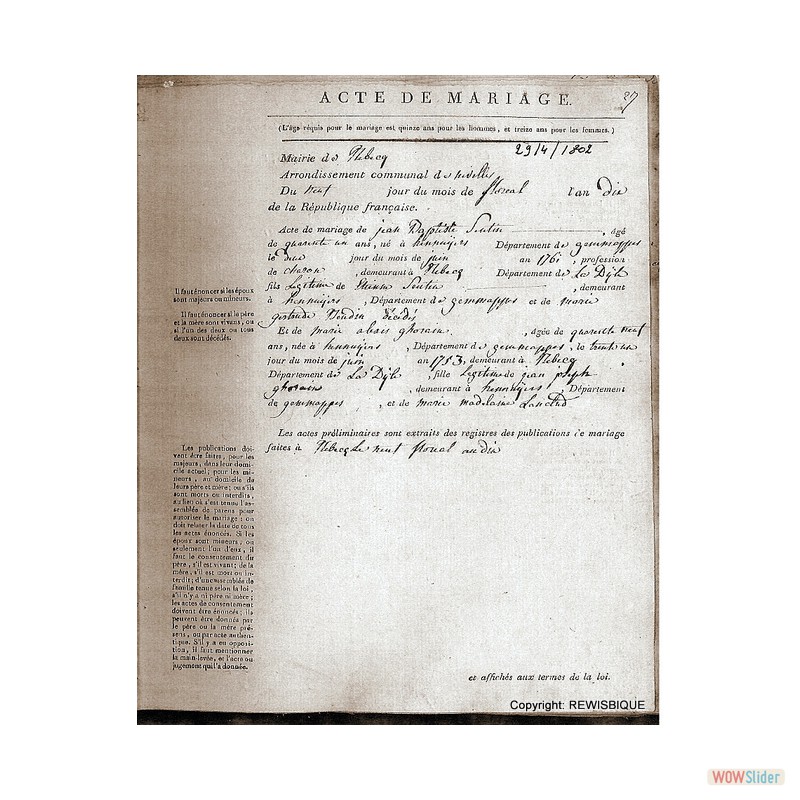 ACTE DE MARIAGE.
27
(L'âge réquis pour le mariage est quinze ans pour les hommes, et treize ans pour les femmes.)
29/4/1802
Mairie de Rebecq
Arrondissement communal de nivelles
Du neuf jour du mois de floreal l'an dix
de la République française.
Acte de mariage de jean Baptiste , âgé
de quarente un ans, né à hennuijers Département de gemmappes
le deux jour du mois de juin an 1761 , profession
de charon , demeurant à Rebecq Département de La Dÿle
fils Legitime de , demeurant
à hennuijers , Département de gemmappes et de marie
gertrude décédés
Et de marie ghorain , âgée de quarente neuf
ans, née à hennuijers , Département de gemmappes , le trente un
jour du mois de juin an 1753, demeurant à Rebecq
Département de La Dÿle , fille Legitime de jean joseph
ghorain , demeurant à hennuijers , Département
de gemmappes , et de marie madelaine
Les actes préliminaires sont extraits des registres des publications de mariage
faites à Rebecq Le neuf floreal an dix
et affichés aux termes de la loi.
Il faut énoncer si les époux
sont majeurs ou mineurs.
Il faut énoncer si le père
et la mère sont vivans, ou
si l'un des deux ou tous
deux sont décédés.
Les publications doi-
vent être faites, pour les
majeurs, dans leur domi-
cile actuel; pour les mi-
neurs, au domicile de
leurs père et mère; ou s'ils
sont morts ou interdits,
au lieu où s'est tenue l'as-
semblée de parens pour
autoriser le mariage: on
doit relater la date de tous
les actes énoncés. Si les
époux sont mineurs, ou
seulement l'un d'eux, il
faut le consentement du
père, s'il est vivant; de la
mère, s'il est mort ou in-
terdit; d'une assemblée de
famille tenue selon la loi,
s'il n'y a ni père ni mère;
les actes de consentement
doivent être énoncés; ils
peuvent être donnés par
le père ou la mère pré-
sens, ou par acte authen-
tique. S'il y a en opposi-
tion, il faut mentionner
la main-levée, et l'acte ou
jugement qui l'a donnée.
Copyright: REWISBIQUE
WOWSlider